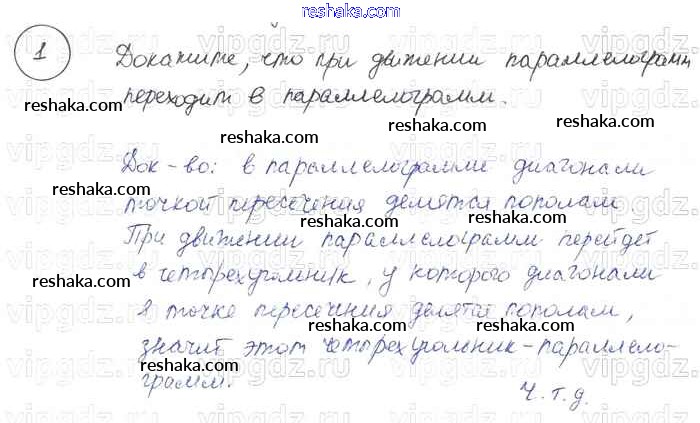 reshaka.com
1 Докажите, что при движении параллелограмм
reshaka.com reshaka.com
переходит в параллелограмм.
reshaka.com
Док-во: в параллелограмме диагонали
reshaka.com
точкой пересечения делятся пополам
reshaka.com reshaka.com
При движении параллелограмм перейдет
reshaka.com
в четырехугольник, у которого диагонали
reshaka.com
в точке пересечения делятся пополам,
reshaka.com
значит этот четырехугольник-параллело-
reshaka.com reshaka.com
грамм.
reshaka.com
ч.т.д.